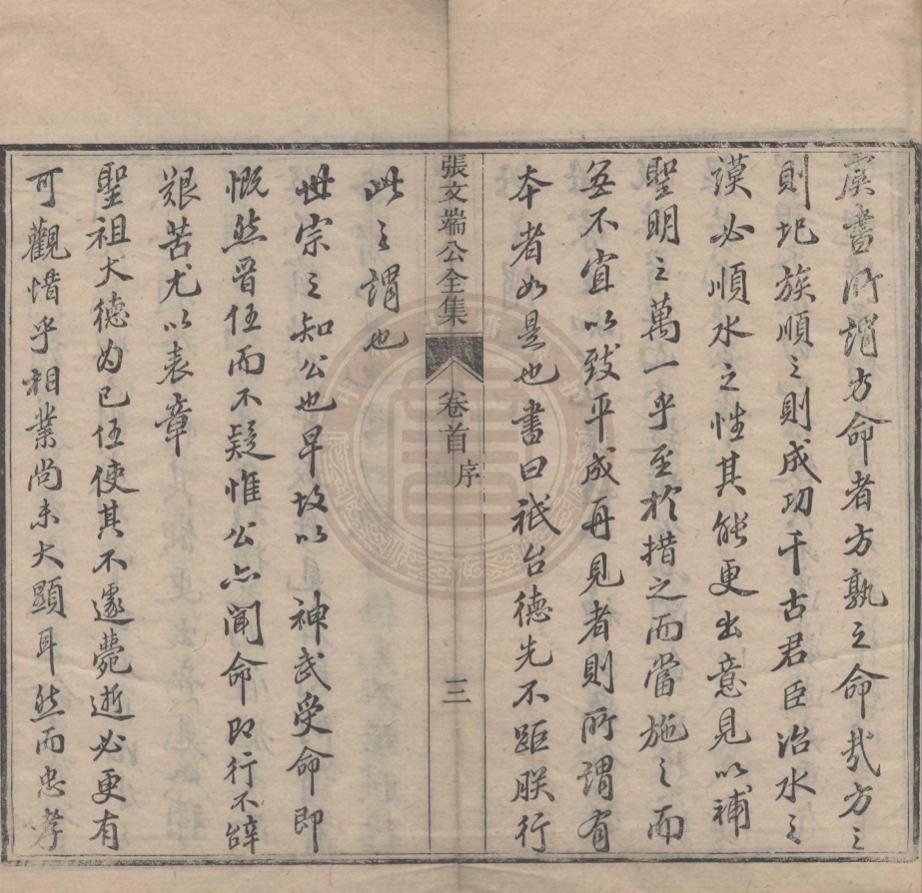 虞書所謂方命者方孰之命哉方之
則圮族順之則成功千古君臣治水之
謨必順水之性其能更出意見以補
聖明之萬一乎至於措之而當施之而
無不宜以致平成再見者則所謂有
本者如是也書曰祇台德先不距朕行
張文端公全集
卷首
序
三
此之謂也
世宗之知公也早故以神武受命即
慨然晉任而不疑惟公亦聞命即行不辭
艱苦尤以表章
聖祖大德為己任使其不遽薨逝必更有
可觀惜乎相業尚未大顯耳然而忠孝